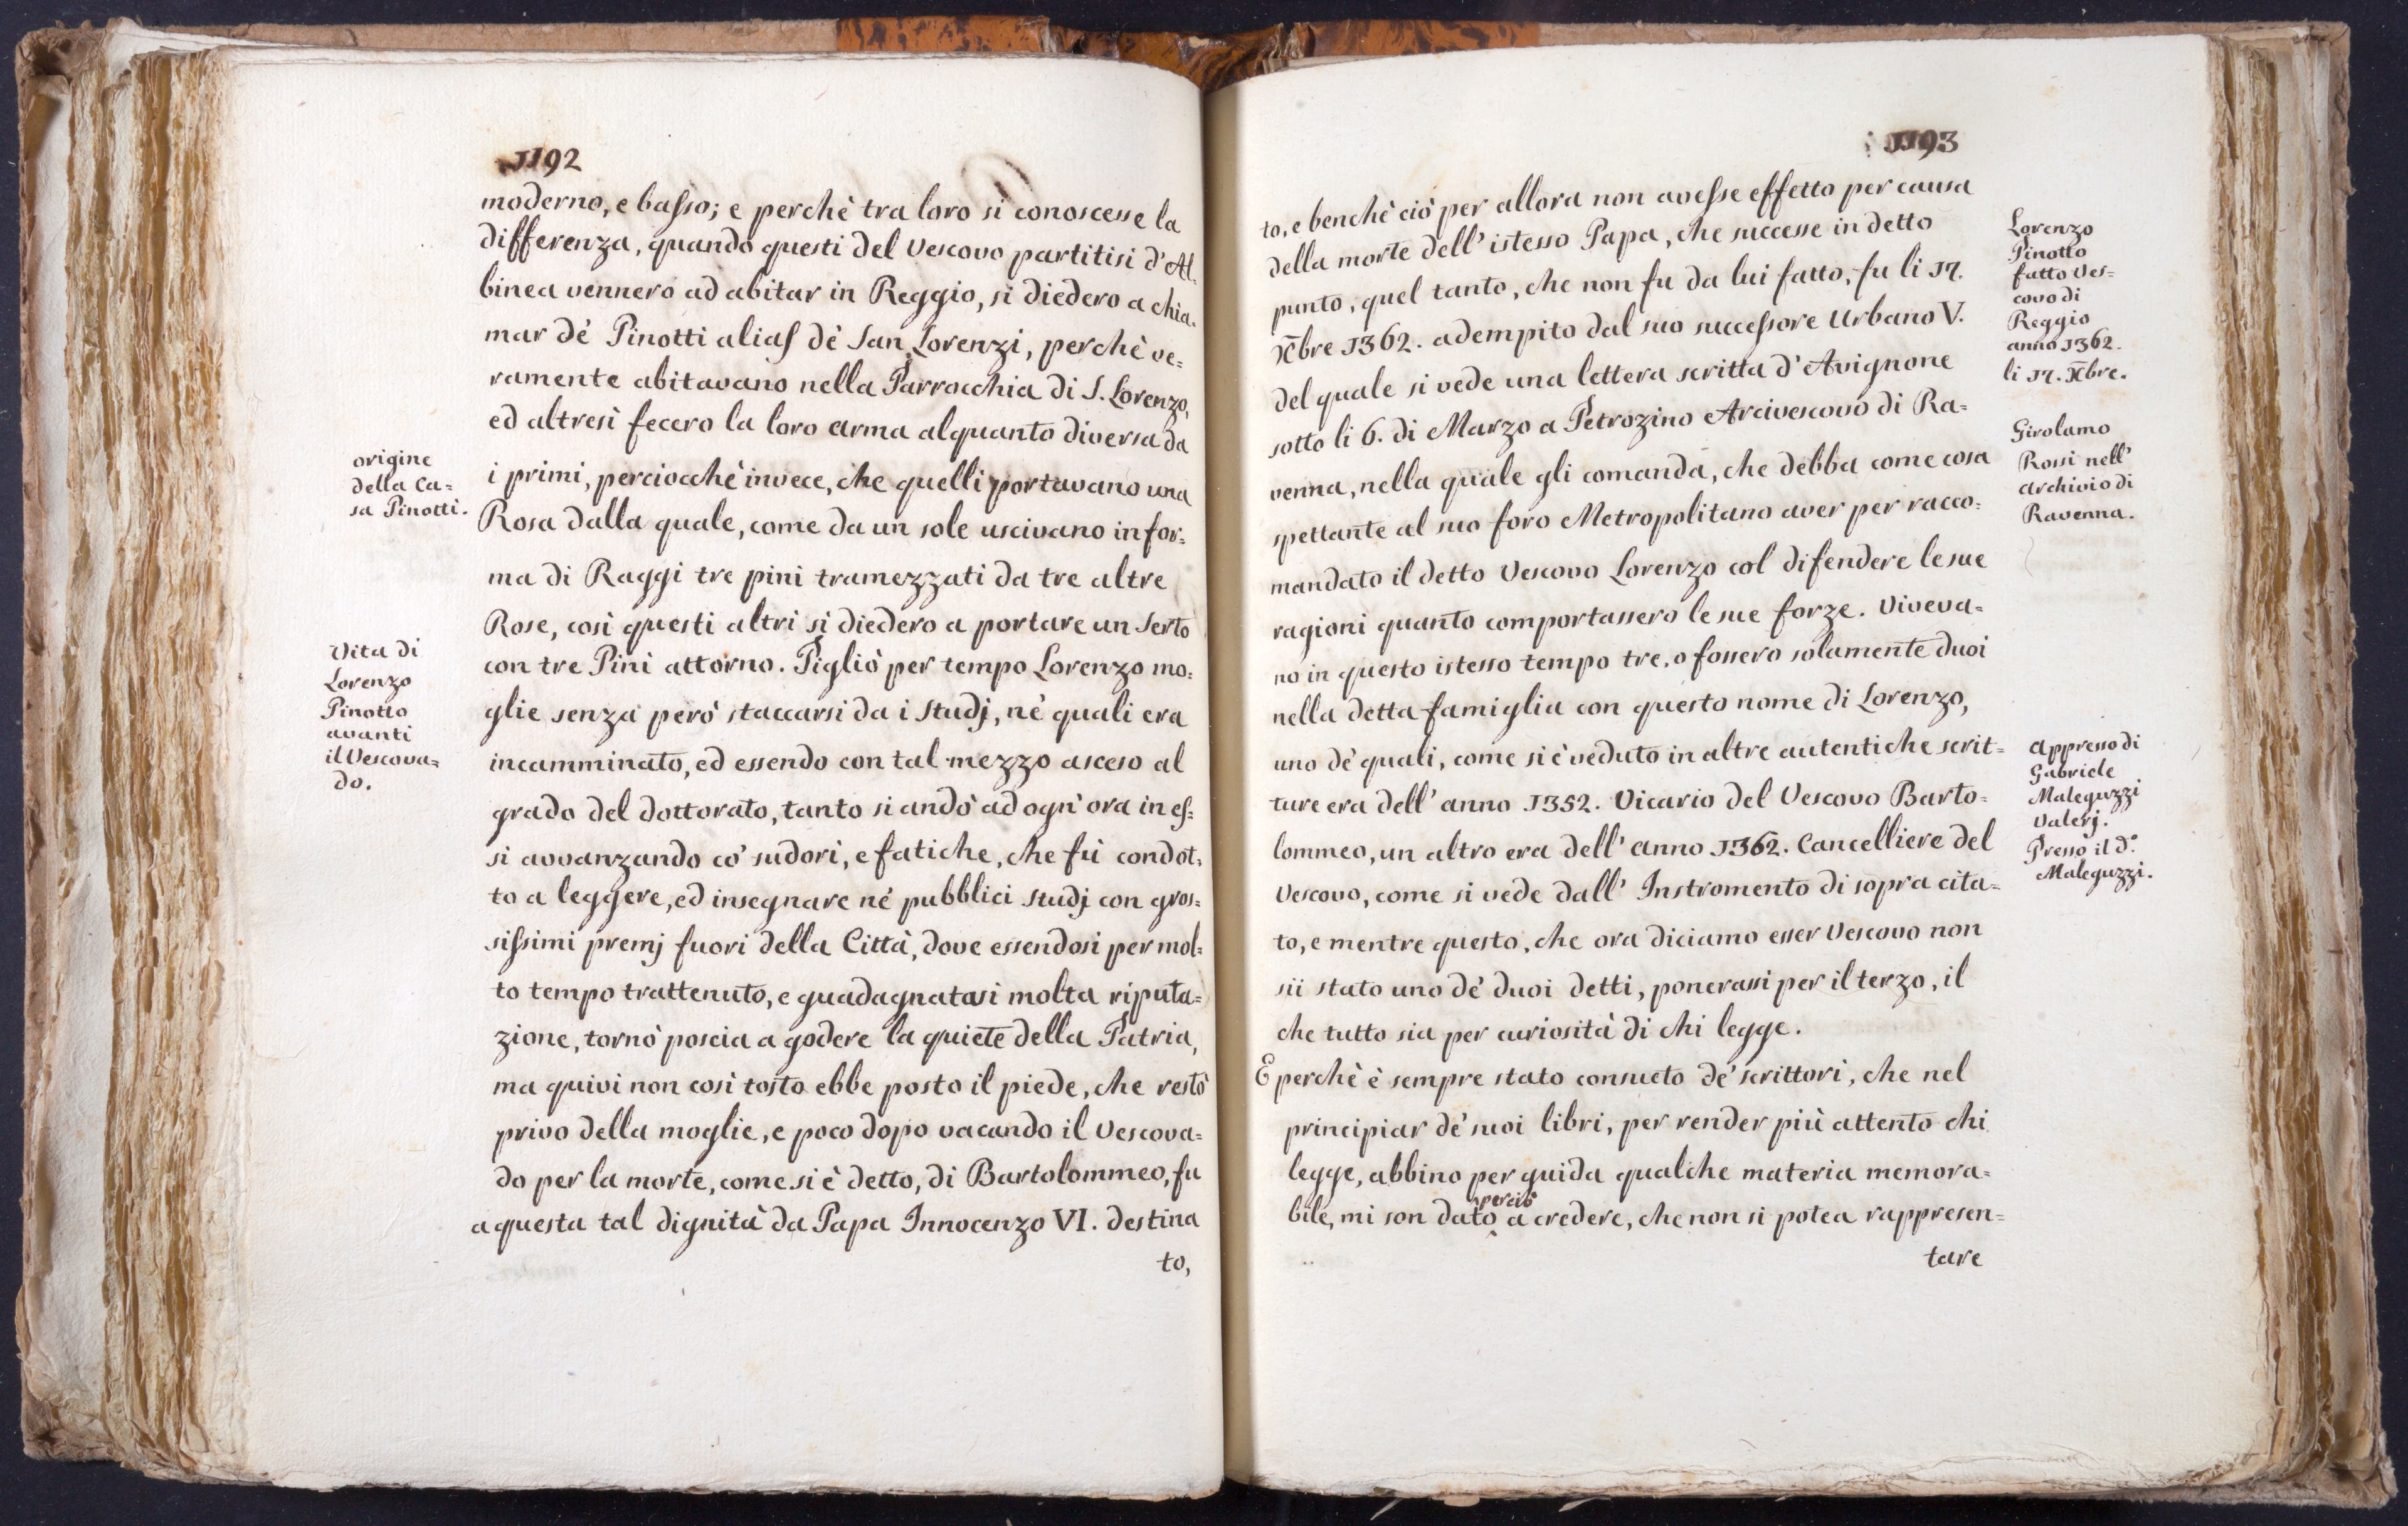 1192
moderno, e basso; e perchè tra loro si conoscesse la
differenza, quando questi del Vescovo partitisi d'Al=
binea vennero ad abitar in Reggio, si diedero a chia=
mar dè Pinotti alias dè San Lorenzi, perchè ve=
ramente abitavano nella Parrocchia di S. Lorenzo,
ed altresì fecero la loro arma alquanto diversa da
i primi, perciocchè invece, che quelli portavano una
Rosa dalla quale, come da un sole uscivano in for=
ma di Raggi tre pini tramezzati da tre altre
Rose, così questi altri si diedero a portare un Serto
con tre Pini attorno. Pigliò per tempo Lorenzo mo=
glie senza però staccarsi da i Studj, nè quali era
incamminato, ed essendo con tal mezzo asceso al
grado del dottorato, tanto si andò ad ogn'ora in es=
si avvanzando co' sudori, e fatiche, che fù condot=
to a leggere, ed insegnare nè pubblici Studj con gros=
sissimi premj fuori della Città, dove essendosi per mol=
to tempo trattenuto, e guadagnatasi molta riputa=
zione, tornò poscia a godere la quiete della Patria,
ma quivi non così tosto ebbe posto il piede, che restò
privo della moglie, e poco dopo vacando il Vescova=
do per la morte, come si è detto, di Bartolommeo, fu
a questa tal dignità da Papa Innocenzo VI. destina
to,
origine
della Ca=
sa Pinotti.
Vita di
Lorenzo
Pinotto
avanti
il Vescova=
do.
1193
to, e benchè ciò per allora non avesse effetto per causa
della morte dell' istesso Papa, che successe in detto
punto, quel tanto, che non fu da lui fatto, fu li 17.
Xbre 1362. adempito dal suo successore Urbano V.
del quale si vede una lettera scritta d'Avignone
sotto li 6. di Marzo a Petrozino Arcivescovo di Ra=
venna, nella quale gli comanda, che debba come cosa
spettante al suo foro Metropolitano aver per racco=
mandato il detto Vescovo Lorenzo col difendere le sue
ragioni quanto comportassero le sue forze. Viveva=
no in questo istesso tempo tre, o fossero solamente duoi
nella detta famiglia con questo nome di Lorenzo,
uno dè quali, come si è veduto in altre autentiche scrit=
ture era dell' anno 1352. Vicario del Vescovo Barto=
lommeo, un altro era dell' anno 1362. Cancelliere del
Vescovo, come si vede dall' Instromento di sopra cita=
to, e mentre questo, che ora diciamo esser Vescovo non
sii stato uno dè duoi detti, ponerassi per il terzo, il
che tutto sia per curiosità di chi legge.
E perchè è sempre stato consueto de' scrittori, che nel
principiar dè suoi libri, per render più attento chi
legge, abbino per guida qualche materia memora=
perciò
bile, mi son dato a credere, che non si potea rappresen=
tare
Lorenzo
Pinotto
fatto Ves=
covo di
Reggio
anno 1362.
li 17. Xbre.
Girolamo
Rossi nell'
archivio di
Ravenna.
appresso di
Gabriele
Maleguzzi
Valerj.
Presso il dº.
Maleguzzi.